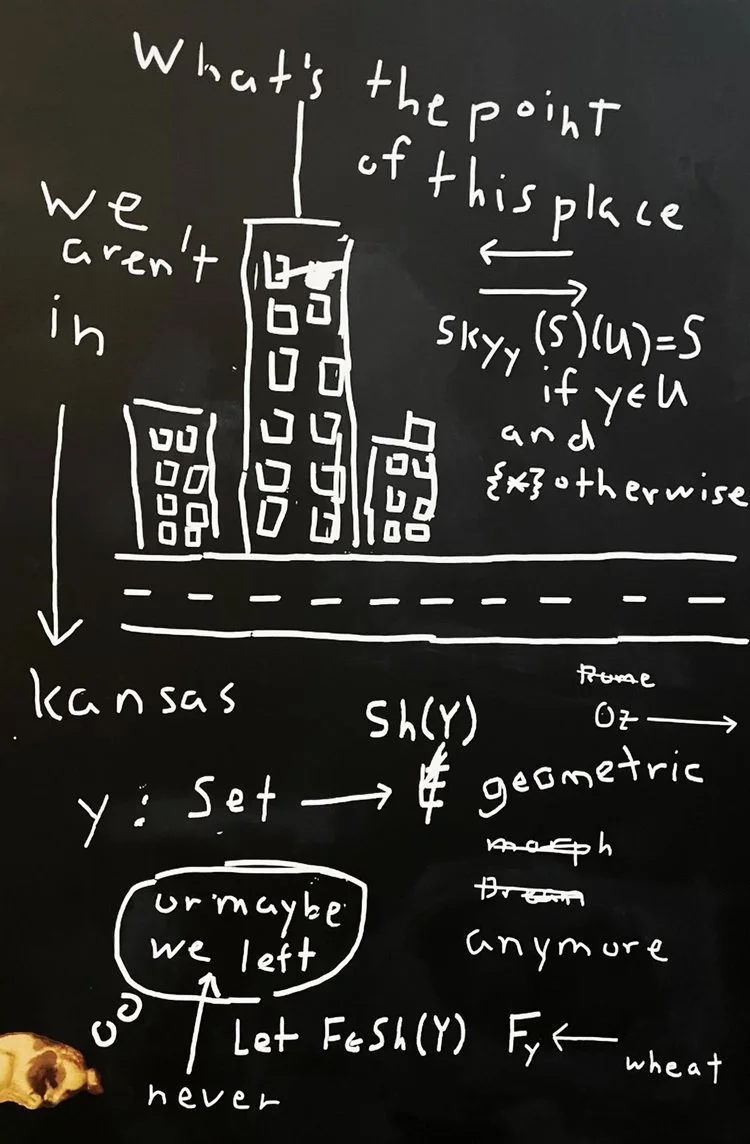 What's the point
of this place
we
aren't
in
skyy (S)(U)=S
if y∈U
and
{*} otherwise
kansas
Rome
Oz
Sh(Y)
y: Set → ∉ geometric
morph
Dream
anymore
or maybe
we left
Let F∈Sh(Y) Fy
wheat
never